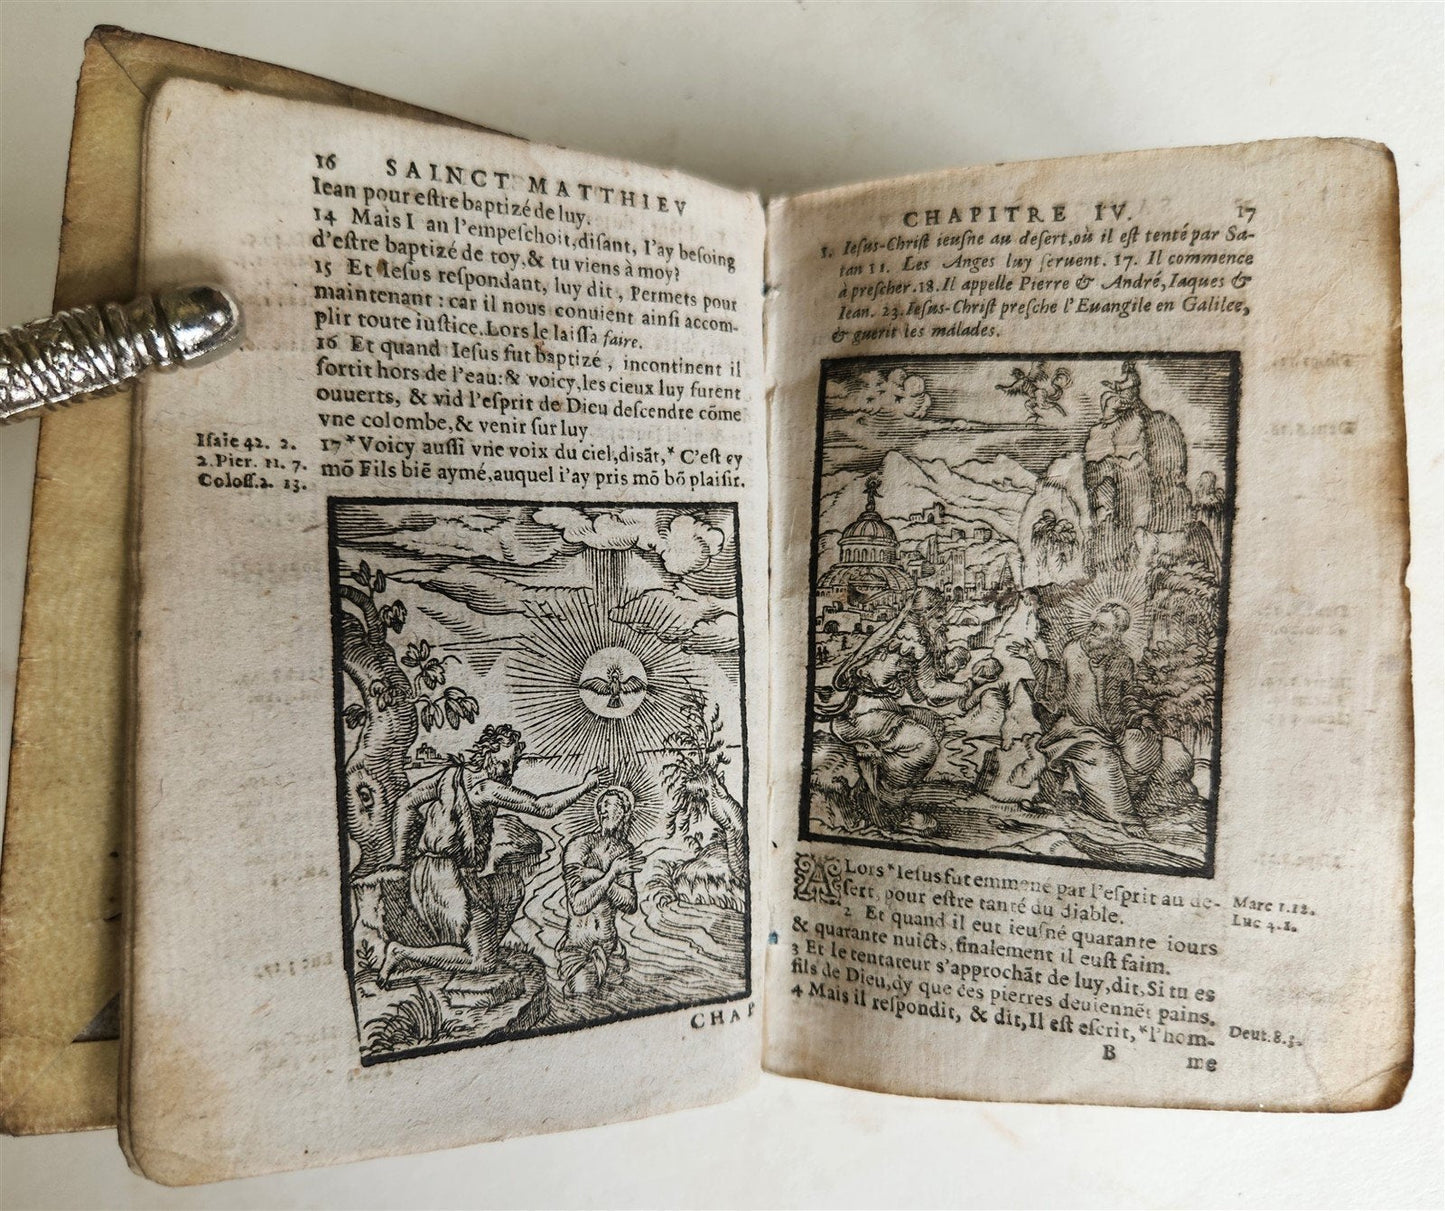 16 SAINCT MATTHIEV
Iean pour eſtre baptizé de luy.
14 Mais I an l'empeſchoit, diſant, I'ay beſoing
d'eſtre baptizé de toy, & tu viens à moy?
15 Et Ieſus reſpondant, luy dit, Permets pour
maintenant : car il nous conuient ainſi accom-
plir toute iuſtice. Lors le laiſſa faire.
16 Et quand Ieſus fut baptizé, incontinent il
ſortit hors de l'eau: & voicy, les cieux luy furent
ouuerts, & vid l'eſprit de Dieu deſcendre cõme
vne colombe, & venir ſur luy.
Iſaie 42. 2.
2. Pier. 11. 7.
Coloſſ. 2. 13.
17 * Voicy auſſi vne voix du ciel, diſãt, * C'eſt cy
mõ Fils biẽ aymé, auquel i'ay pris mõ bõ plaiſir.
CHAP
CHAPITRE IV. 17
1. Ieſus-Chriſt ieuſne au deſert, où il eſt tenté par Sa-
tan 11. Les Anges luy ſeruent. 17. Il commence
à preſcher. 18. Il appelle Pierre & André, Iaques &
Iean. 23. Ieſus-Chriſt preſche l'Euangile en Galilee,
& guerit les malades.
ALors * Ieſus fut emmené par l'eſprit au de-
ſert, pour eſtre tanté du diable.
2 Et quand il eut ieuſné quarante iours
& quarante nuicts, finalement il euſt faim.
3 Et le tentateur s'approchãt de luy, dit, Si tu es
fils de Dieu, dy que ces pierres deuiennẽt pains.
4 Mais il reſpondit, & dit, Il eſt eſcrit, * l'hom-
B me
Marc 1. 12.
Luc 4. 1.
Deut. 8. 3.